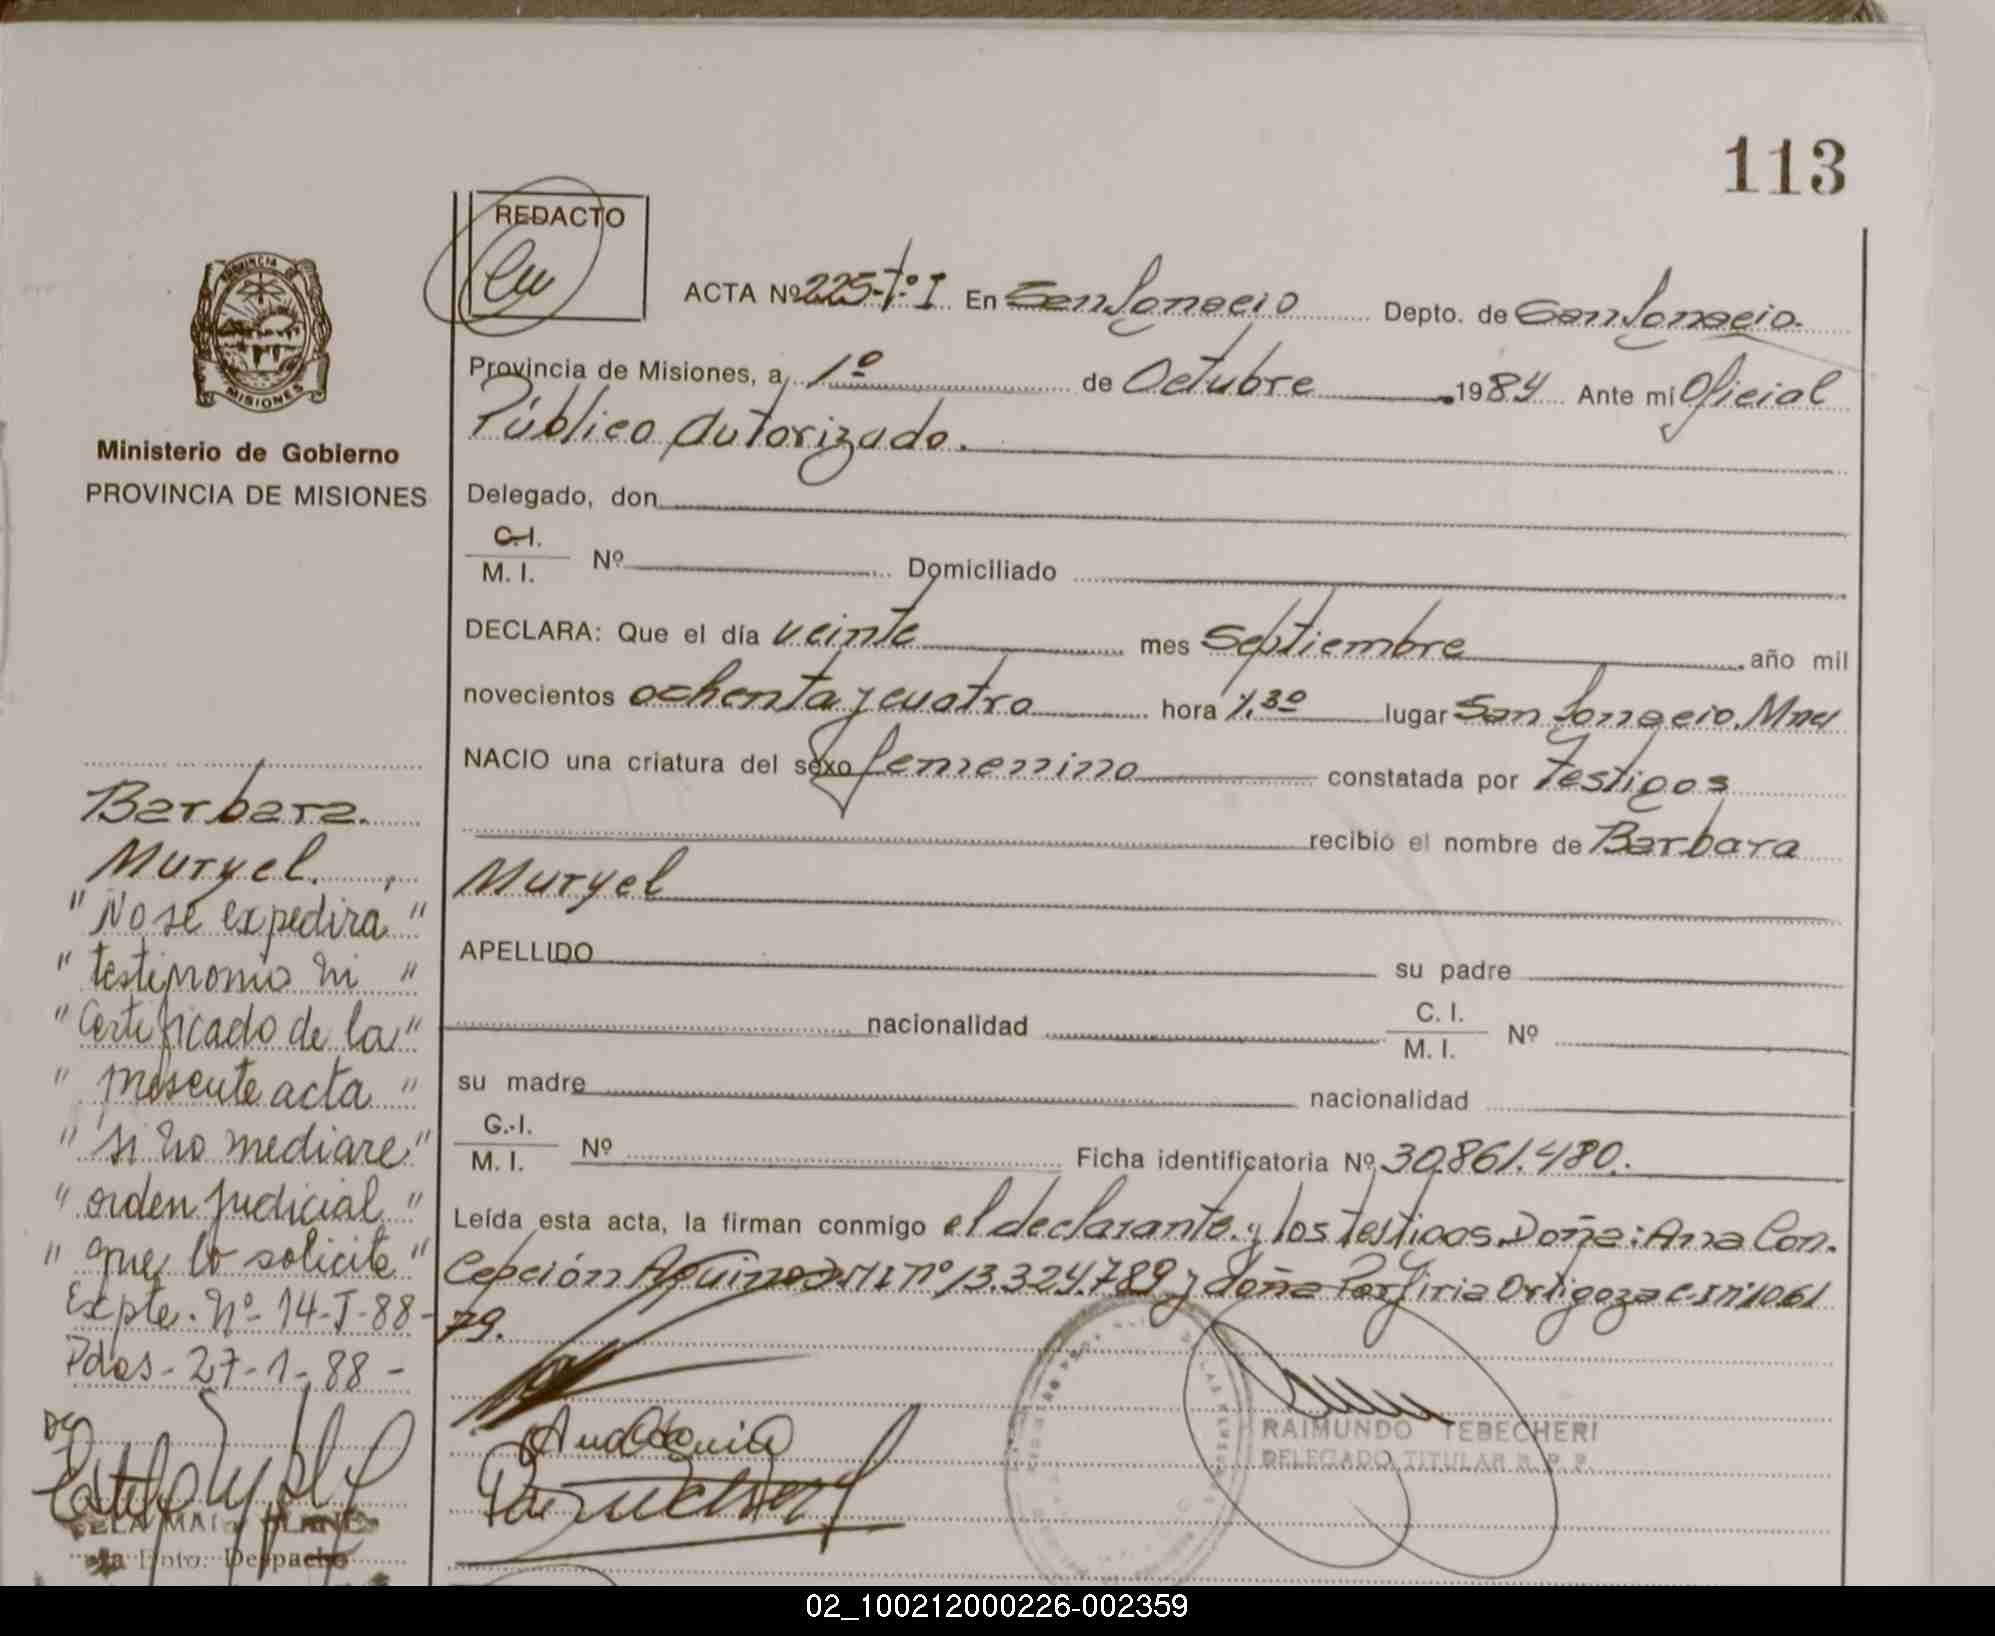 113
REDACTO
ACTA Nº 225-Tº I En San Ignacio Depto. de San Ignacio.
Provincia de Misiones, a 1º de Octubre 1984 Ante mí Oficial
Público Autorizado.
Delegado, don
C.I.
M. I. Nº Domiciliado
DECLARA: Que el día veinte mes Septiembre año mil
novecientos ochenta y cuatro hora 1,30 lugar San Ignacio. Mnes
NACIO una criatura del sexo femenino constatada por Testigos
recibió el nombre de Barbara
Muryel
APELLIDO su padre
nacionalidad C. I.
M. I. Nº
su madre nacionalidad
C.I.
M. I. Nº Ficha identificatoria Nº 30.861.480.
Leída esta acta, la firman conmigo el declarante. y los testigos. Doña: Ana Con.
cepción Aquino MI nº 13.324.789 y doña Porfiria Ortigoza C.I nº 1061
79.
RAIMUNDO TEBECHERI
DELEGADO TITULAR R. P. P.
PROVINCIA DE
MISIONES
Ministerio de Gobierno
PROVINCIA DE MISIONES
Barbara.
Muryel.
"No se expedira"
"testimonio ni"
"Certificado de la"
"presente acta"
"si no mediare"
"orden judicial"
"que lo solicite"
Expte. Nº 14-J-88-
Pdas-27-1-88-
Dpto. Despacho
02_100212000226-002359